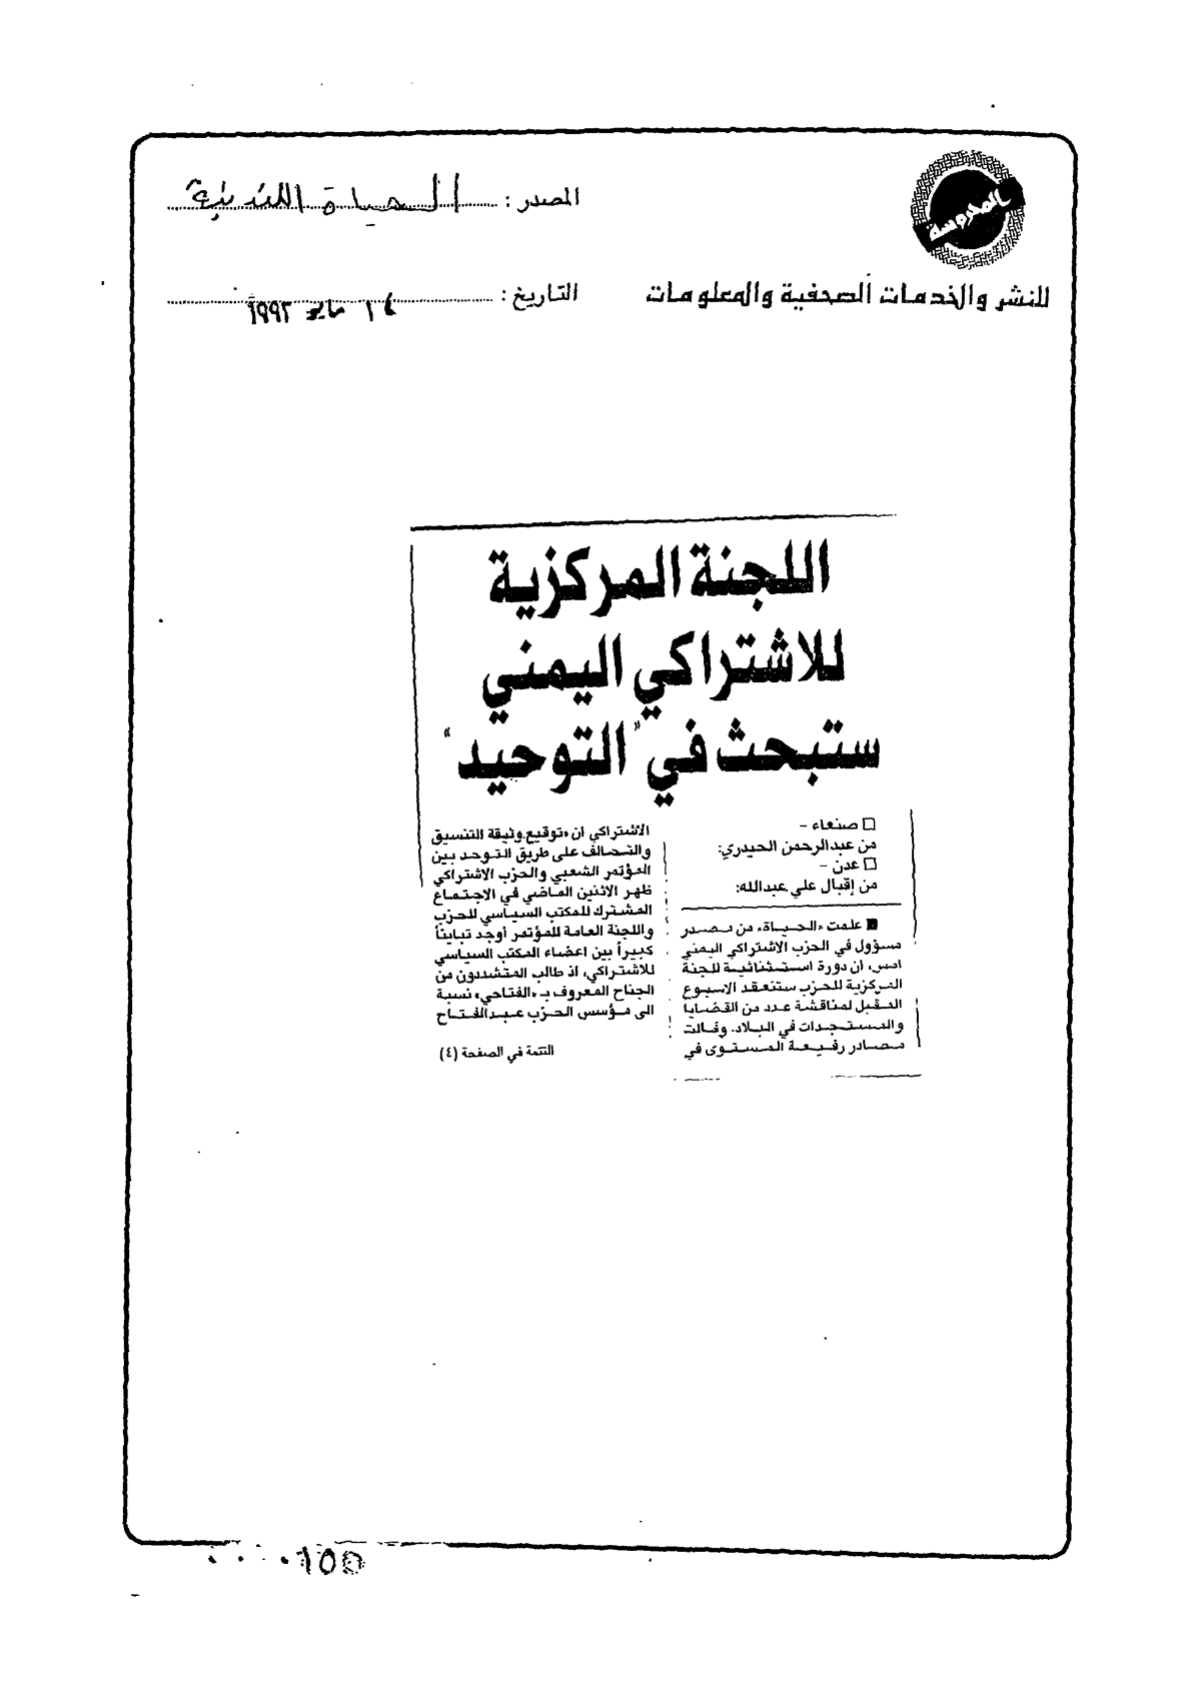 المحروسة
للنشر والخدمات الصحفية والمعلومات
المصدر : الحياة اللندنية
التاريخ : ١٤ مايو ١٩٩٣
اللجنة المركزية
للاشتراكي اليمني
ستبحث في "التوحيد"
□ صنعاء –
من عبدالرحمن الحيدري:
□ عدن –
من إقبال علي عبدالله:
■ علمت «الحياة» من مصدر
مسؤول في الحزب الاشتراكي اليمني
امس، ان دورة استثنائية للجنة
المركزية للحزب ستنعقد الاسبوع
المقبل لمناقشة عدد من القضايا
والمستجدات في البلاد. وقالت
مصادر رفيعة المستوى في
الاشتراكي ان «توقيع وثيقة التنسيق
والتحالف على طريق التوحد بين
المؤتمر الشعبي والحزب الاشتراكي
ظهر الاثنين الماضي في الاجتماع
المشترك للمكتب السياسي للحزب
واللجنة العامة للمؤتمر أوجد تبايناً
كبيراً بين اعضاء المكتب السياسي
للاشتراكي، اذ طالب المتشددون من
الجناح المعروف بـ «الفتاحي» نسبة
الى مؤسس الحزب عبدالفتاح
التتمة في الصفحة (٤)